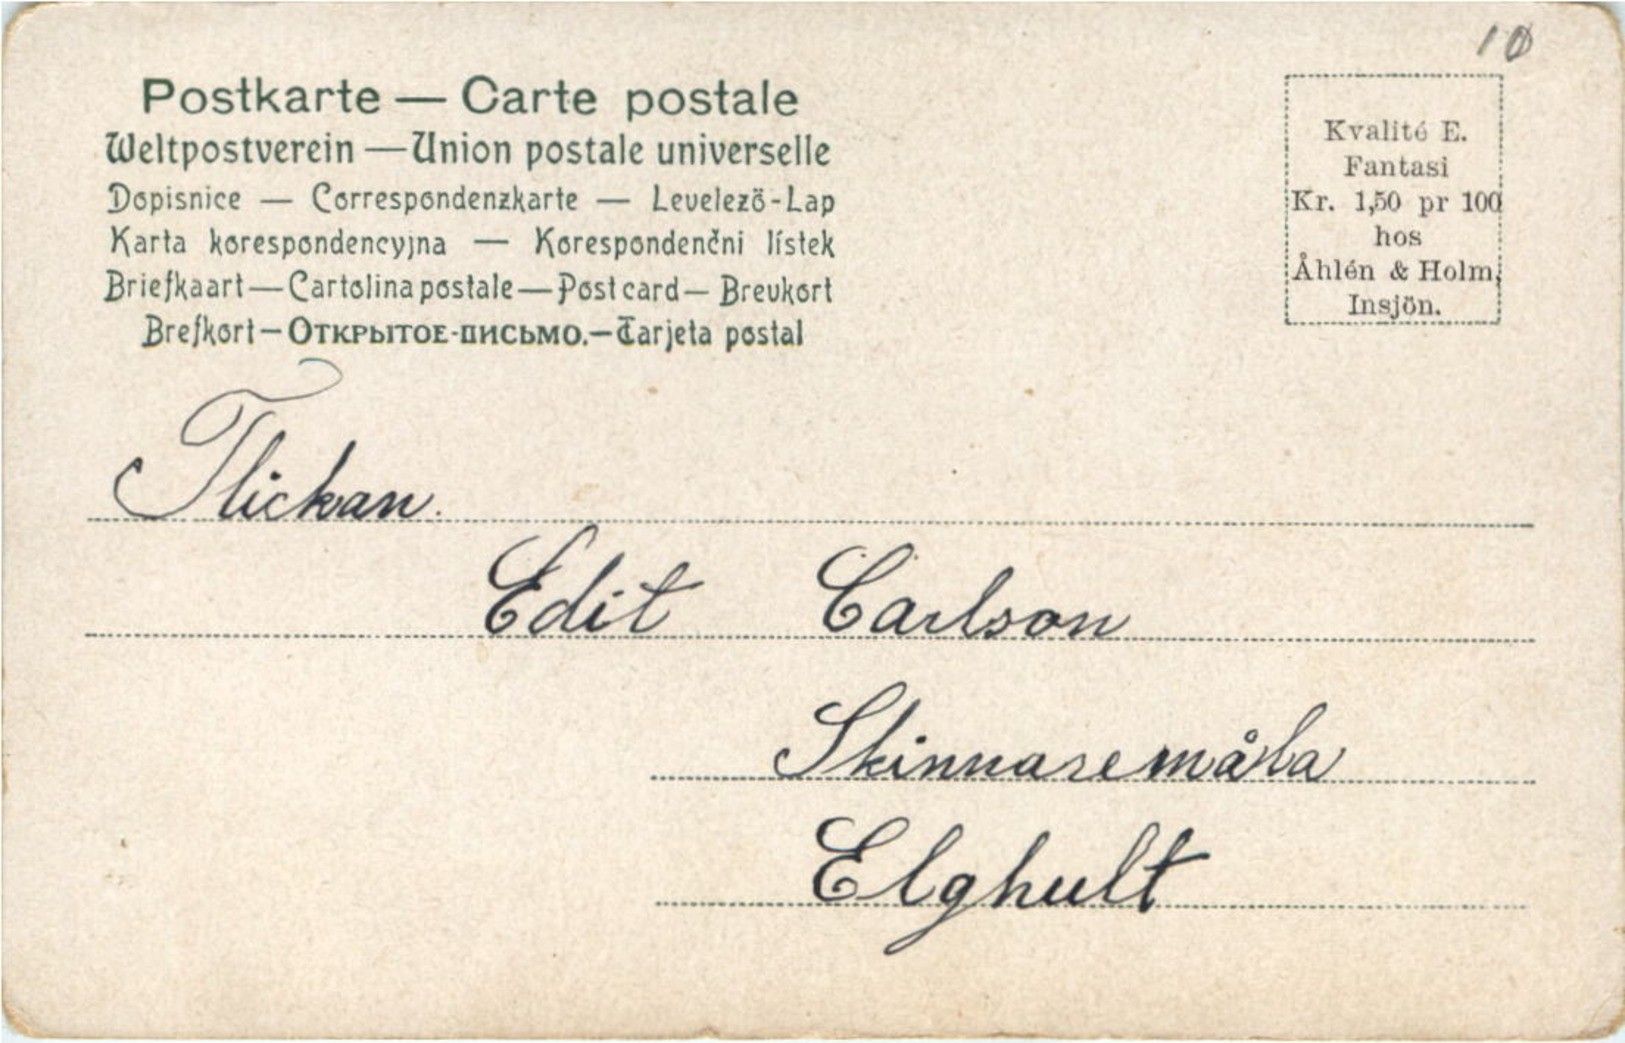 10
Postkarte — Carte postale
Weltpostverein — Union postale universelle
Dopisnice — Correspondenzkarte — Levelező-Lap
Karta korespondencyjna — Korespondenční lístek
Briefkaart — Cartolina postale — Post card — Brevkort
Brefkort — Открытое-письмо. — Tarjeta postal
Kvalité E.
Fantasi
Kr. 1,50 pr 100
hos
Åhlén & Holm,
Insjön.
Flickan.
Edit Carlson
Skinnaremåla
Elghult